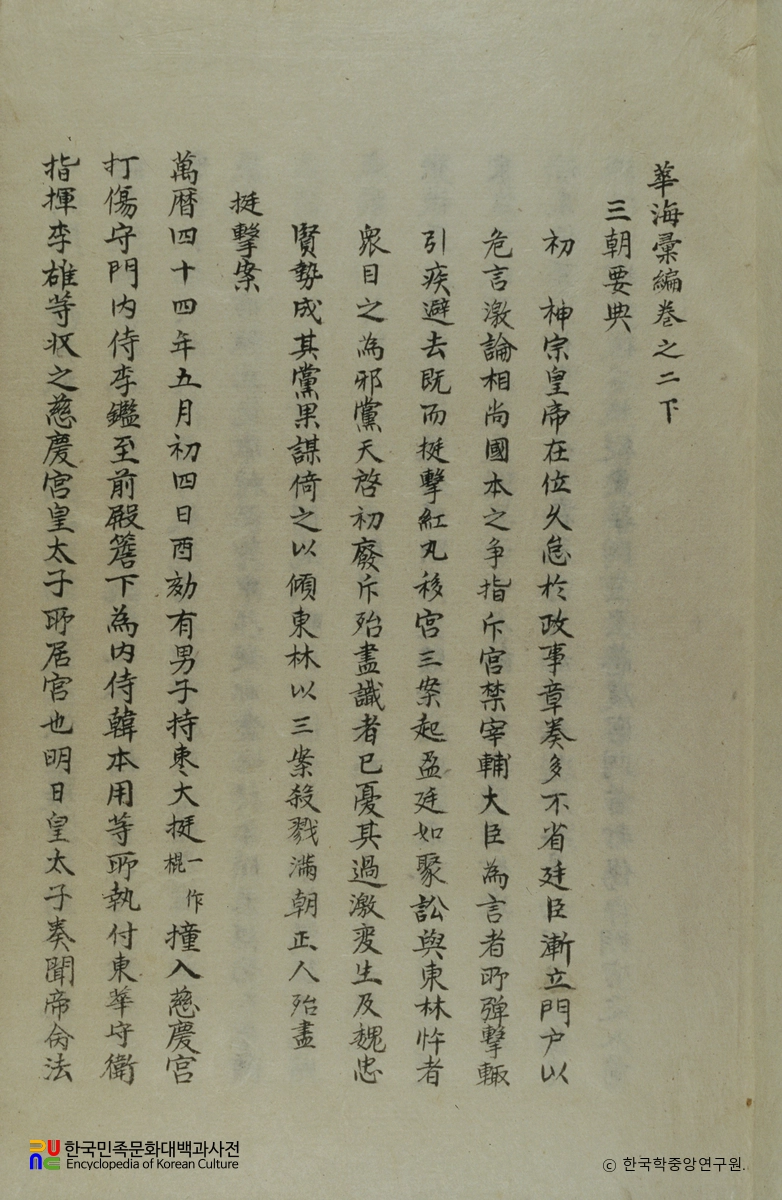 華海彙編卷之二下
三朝要典
初 神宗皇帝在位久怠於政事章奏多不省廷臣漸立門户以
危言激論相尚國本之争指斥宮禁宰輔大臣為言者所彈擊輒
引疾避去既而挺擊紅丸移宮三案起盈廷如聚訟與東林忤者
衆目之為邪黨天啓初廢斥殆盡識者已憂其過激変生及魏忠
賢勢成其黨果謀倚之以傾東林以三案殺戮滿朝正人殆盡
挺擊案
萬曆四十四年五月初四日酉刻有男子持枣大挺一作棍撞入慈慶宮
打傷守門內侍李鑑至前殿簷下為內侍韓本用等所執付東華守衛
指揮李雄等収之慈慶宮皇太子所居宮也明日皇太子奏聞帝命法
한국민족문화대백과사전
Encyclopedia of Korean Culture
ⓒ 한국학중앙연구원.